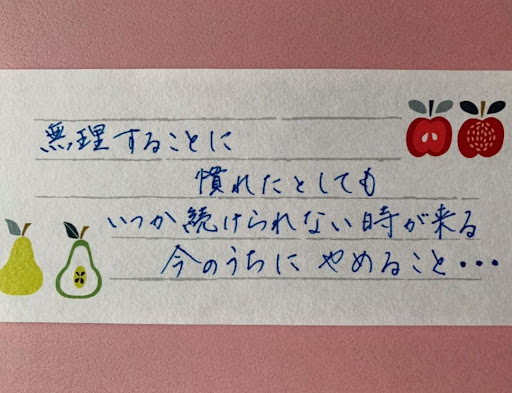 無理することに
慣れたとしても
いつか続けられない時が来る
今のうちに やめること・・・